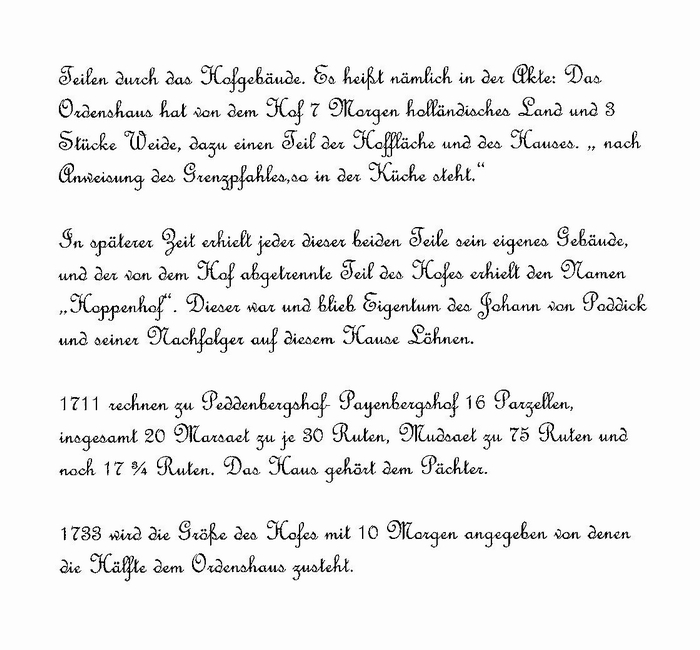 Teilen durch das Hofgebäude. Es heißt nämlich in der Akte: Das
Ordenshaus hat von dem Hof 7 Morgen holländisches Land und 3
Stücke Weide, dazu einen Teil der Hoffläche und des Hauses. „ nach
Anweisung des Grenzpfahles,so in der Küche steht.“
In späterer Zeit erhielt jeder dieser beiden Teile sein eigenes Gebäude,
und der von dem Hof abgetrennte Teil des Hofes erhielt den Namen
„Hoppenhof“. Dieser war und blieb Eigentum des Johann von Poddick
und seiner Nachfolger auf diesem Hause Löhnen.
1711 rechnen zu Peddenbergshof- Payenbergshof 16 Parzellen,
insgesamt 20 Marsaet zu je 30 Ruten, Mudsaet zu 75 Ruten und
noch 17 ¾ Ruten. Das Haus gehört dem Pächter.
1733 wird die Größe des Hofes mit 10 Morgen angegeben von denen
die Hälfte dem Ordenshaus zusteht.